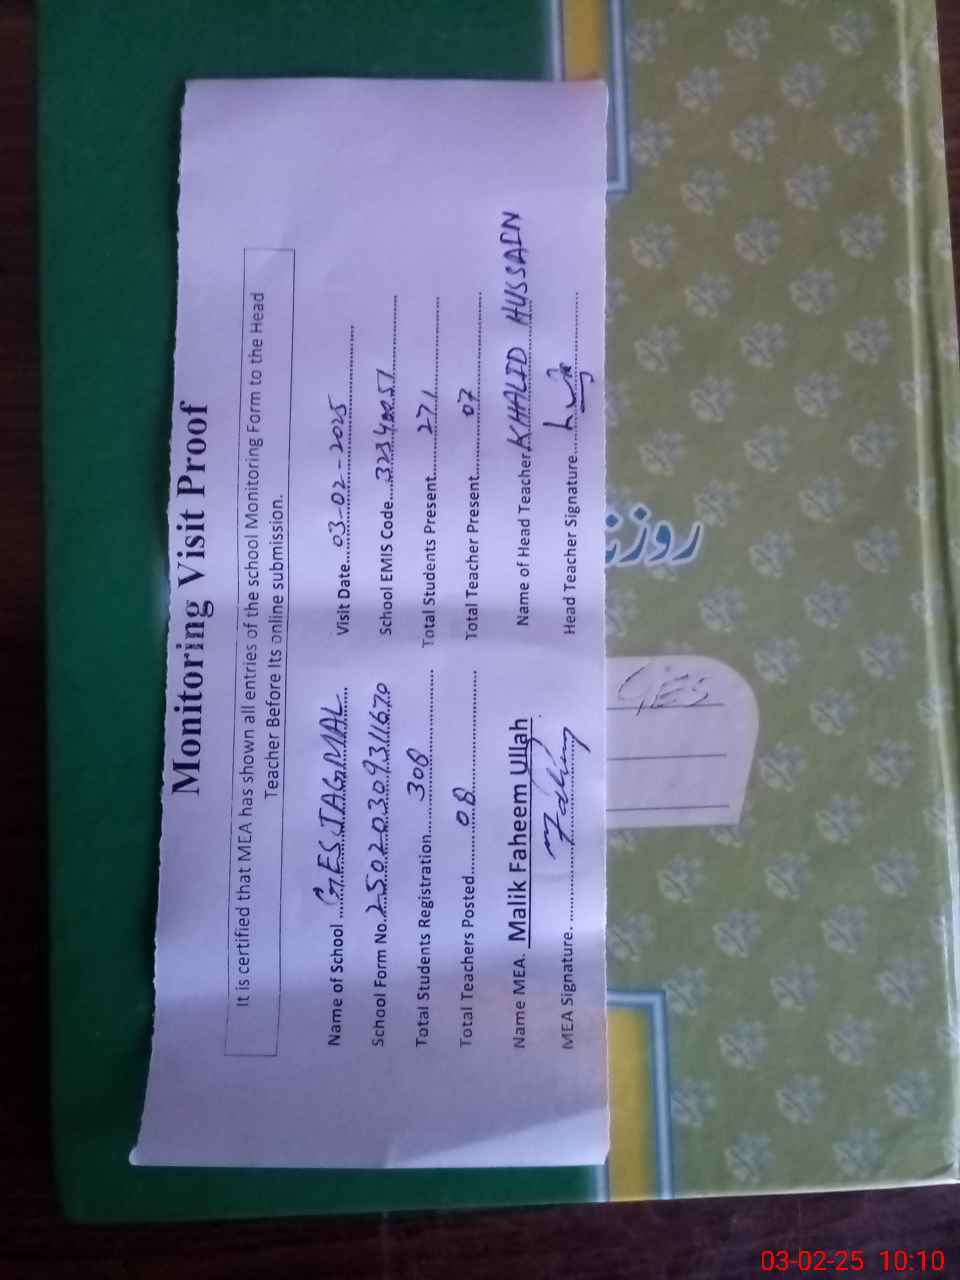 Monitoring Visit Proof
It is certified that MEA has shown all entries of the school Monitoring Form to the Head
Teacher Before Its online submission.
Name of School ........GES JAGMAL Visit Date....03-02-2025
School Form No..25020309311670 School EMIS Code.....32340051
Total Students Registration.......308 Total Students Present........271
Total Teachers Posted..........08 Total Teacher Present..........07
Name MEA. Malik Faheem Ullah Name of Head Teacher KHALID HUSSAIN
MEA Signature. Head Teacher Signature.
GES
03-02-25 10:10